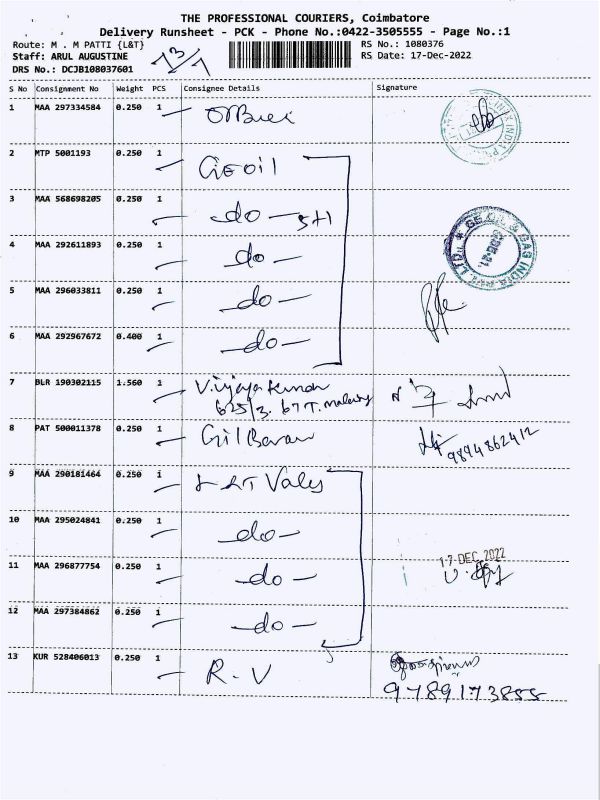 THE PROFESSIONAL COURIERS, Coimbatore
Delivery Runsheet - PCK - Phone No.:0422-3505555 - Page No.:1
Route: M . M PATTI {L&T}
RS No.: 1080376
Staff: ARUL AUGUSTINE
RS Date: 17-Dec-2022
DRS No.: DCJB108037601
S No Consignment No Weight PCS Consignee Details Signature
1 MAA 297334584 0.250 1
2 MTP 5001193 0.250 1 GE oil
3 MAA 568698205 0.250 1 -do-
4 MAA 292611893 0.250 1 -do-
GE OIL & GAS INDIA PVT. LTD.
5 MAA 296033811 0.250 1 -do-
6 MAA 292967672 0.400 1 -do-
7 BLR 190302115 1.560 1 Vijayakumar
625/3. 67 T.
8 PAT 500011378 0.250 1
9894862412
9 MAA 290181464 0.250 1 L&T Valves
10 MAA 295024841 0.250 1 -do-
17 DEC 2022
11 MAA 296877754 0.250 1 -do-
12 MAA 297384862 0.250 1 -do-
13 KUR 528406013 0.250 1 R.V
9789173855